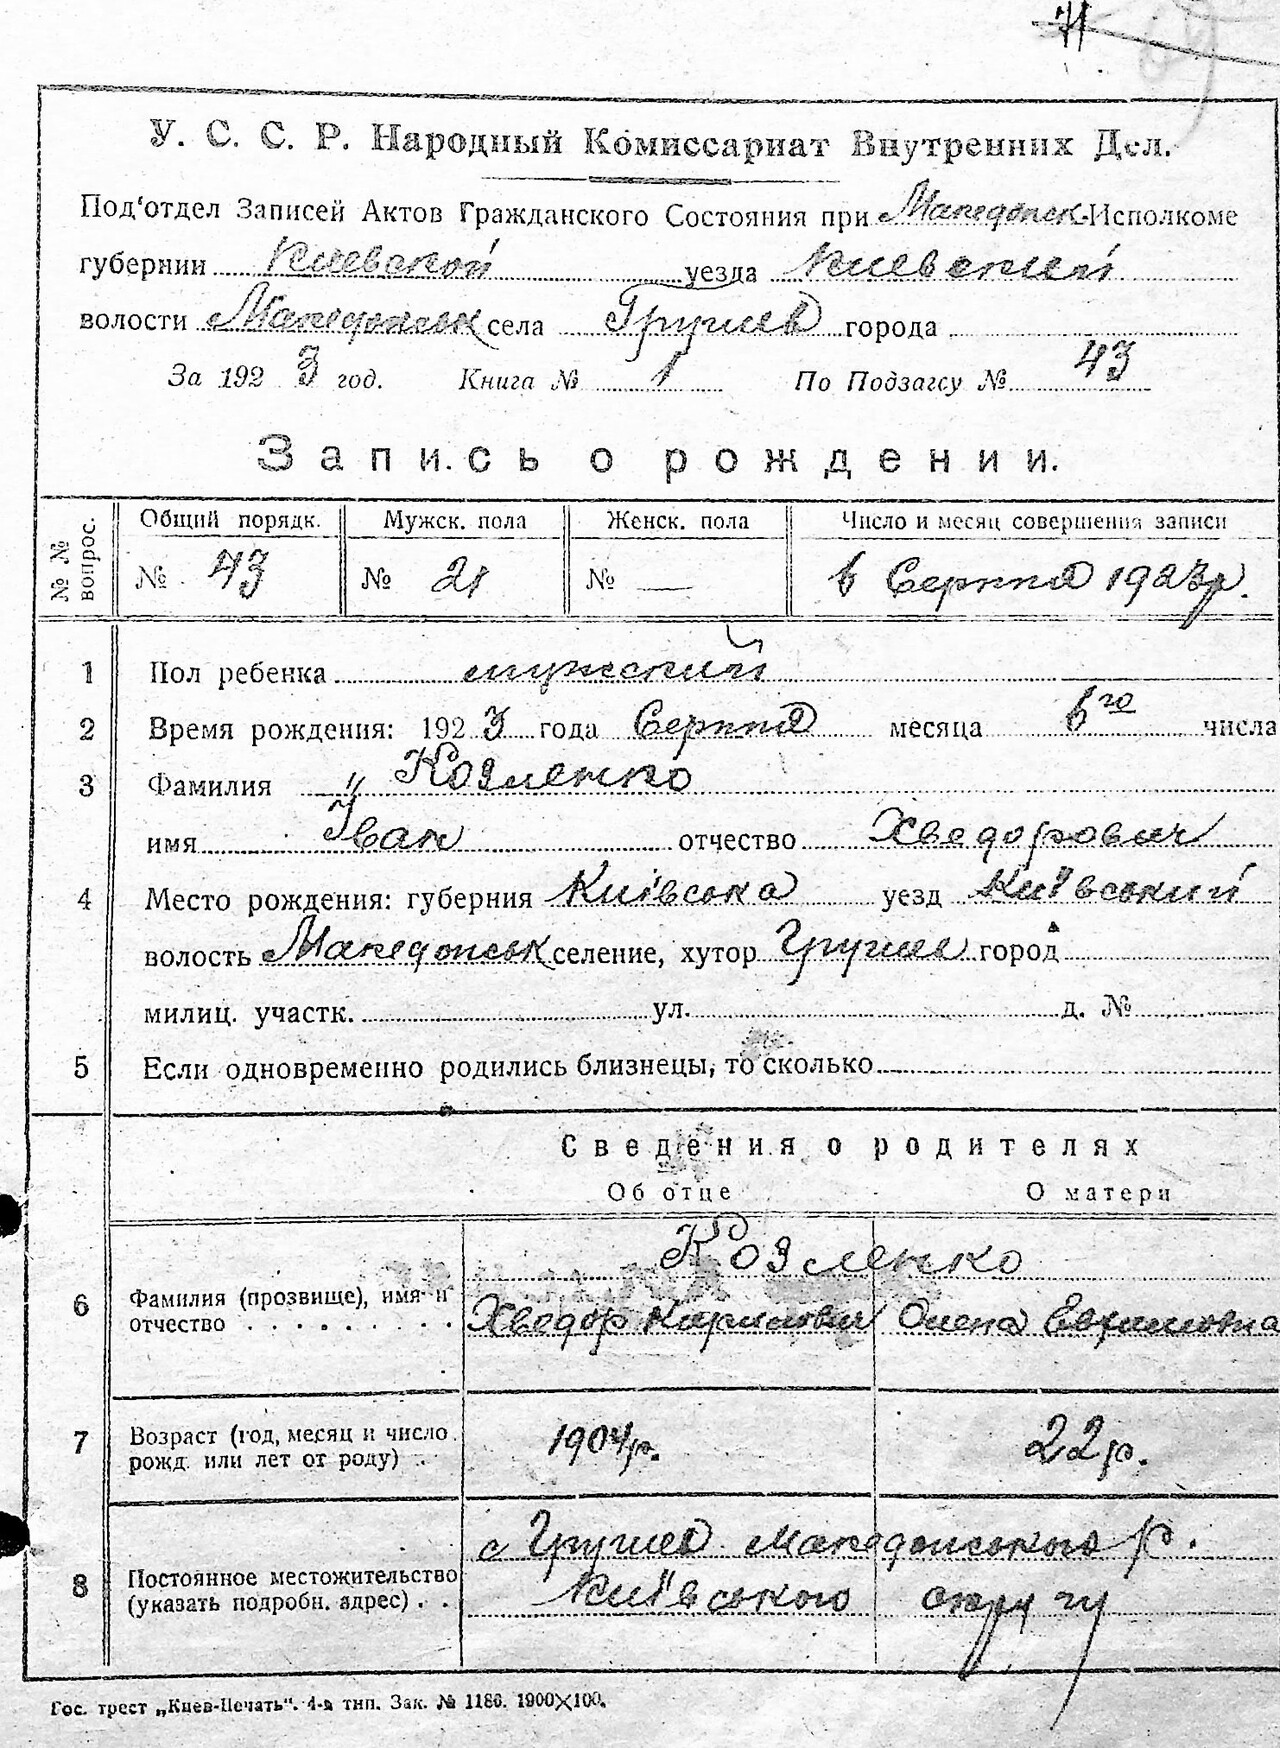 71
У. С. С. Р. Народный Комиссариат Внутренних Дел.
Под'отдел Записей Актов Гражданского Состояния при Македонск. Исполкоме
губернии Киевской уезда Киевский
волости Македонськ села Грушев города
За 1923 год. Книга № 1 По Подзагсу № 43
Запись о рождении.
№ № вопрос.
Общий порядк. Мужск. пола Женск. пола Число и месяц совершения записи
№ 43 № 21 № — 6 Серпня 1923 р.
1 Пол ребенка мужский
2 Время рождения: 1923 года Серпня месяца 6го числа
3 Фамилия Козленко
имя Іван отчество Хведорович
4 Место рождения: губерния Київська уезд Київський
волость Македонськ селение, хутор Грушев город
милиц. участк. ул. д. №
5 Если одновременно родились близнецы, то сколько
Сведения о родителях
Об отце О матери
Козленко
6 Фамилия (прозвище), имя и
отчество Хведор Карилович Олена Евхимовна
7 Возраст (год, месяц и число
рожд. или лет от роду) 1904р. 22р.
с Грушев Македонського р.
8 Постоянное местожительство
(указать подробн. адрес) Київського округу
Гос. трест „Киев-Печать“. 4-я тип. Зак. № 1186. 1900×100.